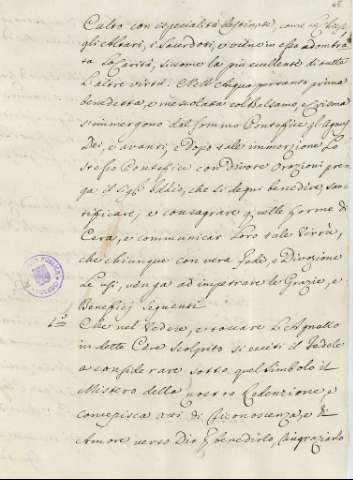 Culto con especialità destinate, come i
gli Altari, i Sacerdoti, vedono in esso adombra
ta la Carità, siccome la più eccellente di tutte
l'altre virtù: Nell'Acqua pertanto prima
benedetta, e mescolata col Balsamo, e Crisma
s'immergono dal sommo Pontefice gl'Agnus
Dei, e avanti, e dopo tale immerzione lo
stesso Pontefice con divote orazioni pre
ga il Sigr. Iddio, che si degni benedire, san
tificare, e consagrare q.celle forme di
Cera, e communicar loro tale Virtù,
che chiunque con vera fede, e Divozione
le usi, venga ad impetrare le Grazie, e
Benefici seguenti
1.o Che nel vedere, e toccare l'Agnello
in detta Cera scolpito si ecciti il fedele
a considerare sotto quel simbolo il
Mistero della nostra Redenzione, e
concepisca atti di Riconoscenza, e di
Amore verso Dio p benedirlo, ringraziarlo